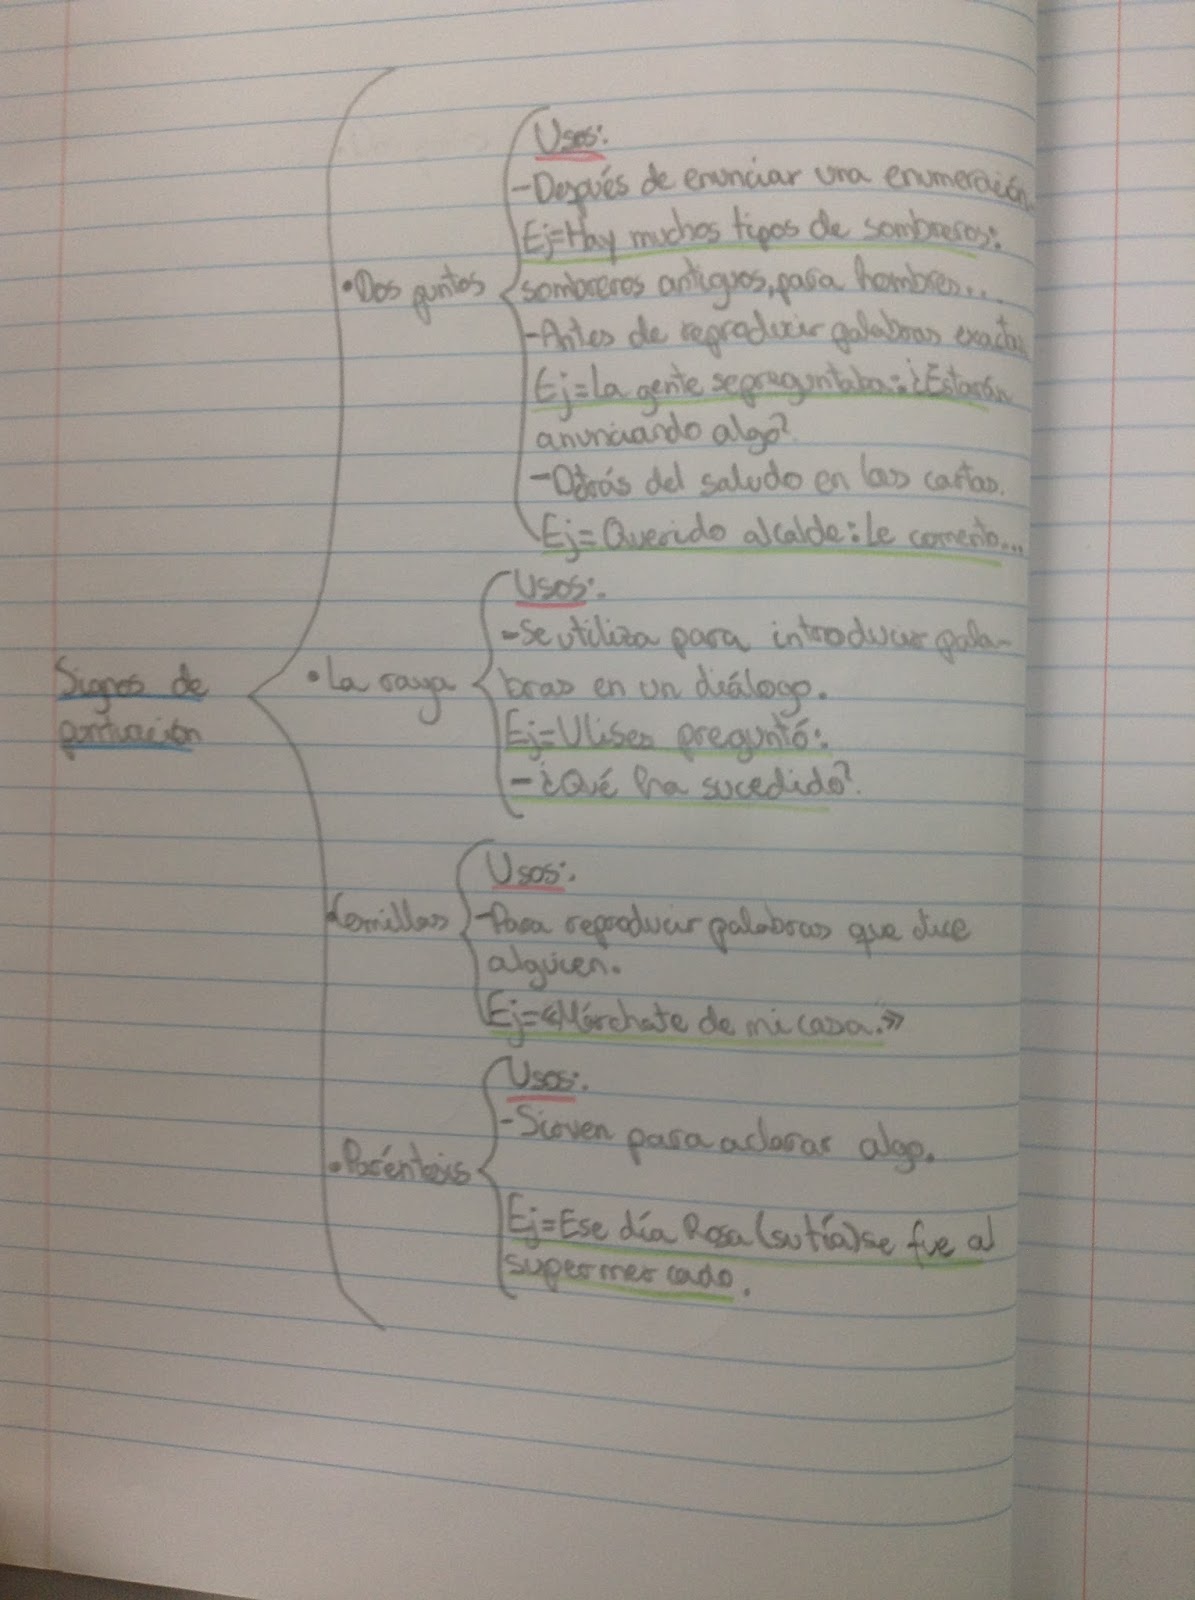 Signos de
puntuación
•Dos puntos
Usos:
-Después de enunciar una enumeración.
Ej=Hay muchos tipos de sombreros:
sombreros antiguos, para hombres...
-Antes de reproducir palabras exactas
Ej=La gente se preguntaba:¿Estarán
anunciando algo?
-Detrás del saludo en las cartas.
Ej=Querido alcalde:Le comento...
•La raya
Usos:
-Se utiliza para introducir pala-
bras en un diálogo.
Ej=Ulises preguntó:
-¿Qué ha sucedido?
•Comillas
Usos:
-Para reproducir palabras que dice
alguien.
Ej=«Márchate de mi casa.»
•Paréntesis
Usos:
-Sirven para aclarar algo.
Ej=Ese día Rosa(su tía)se fue al
supermercado.